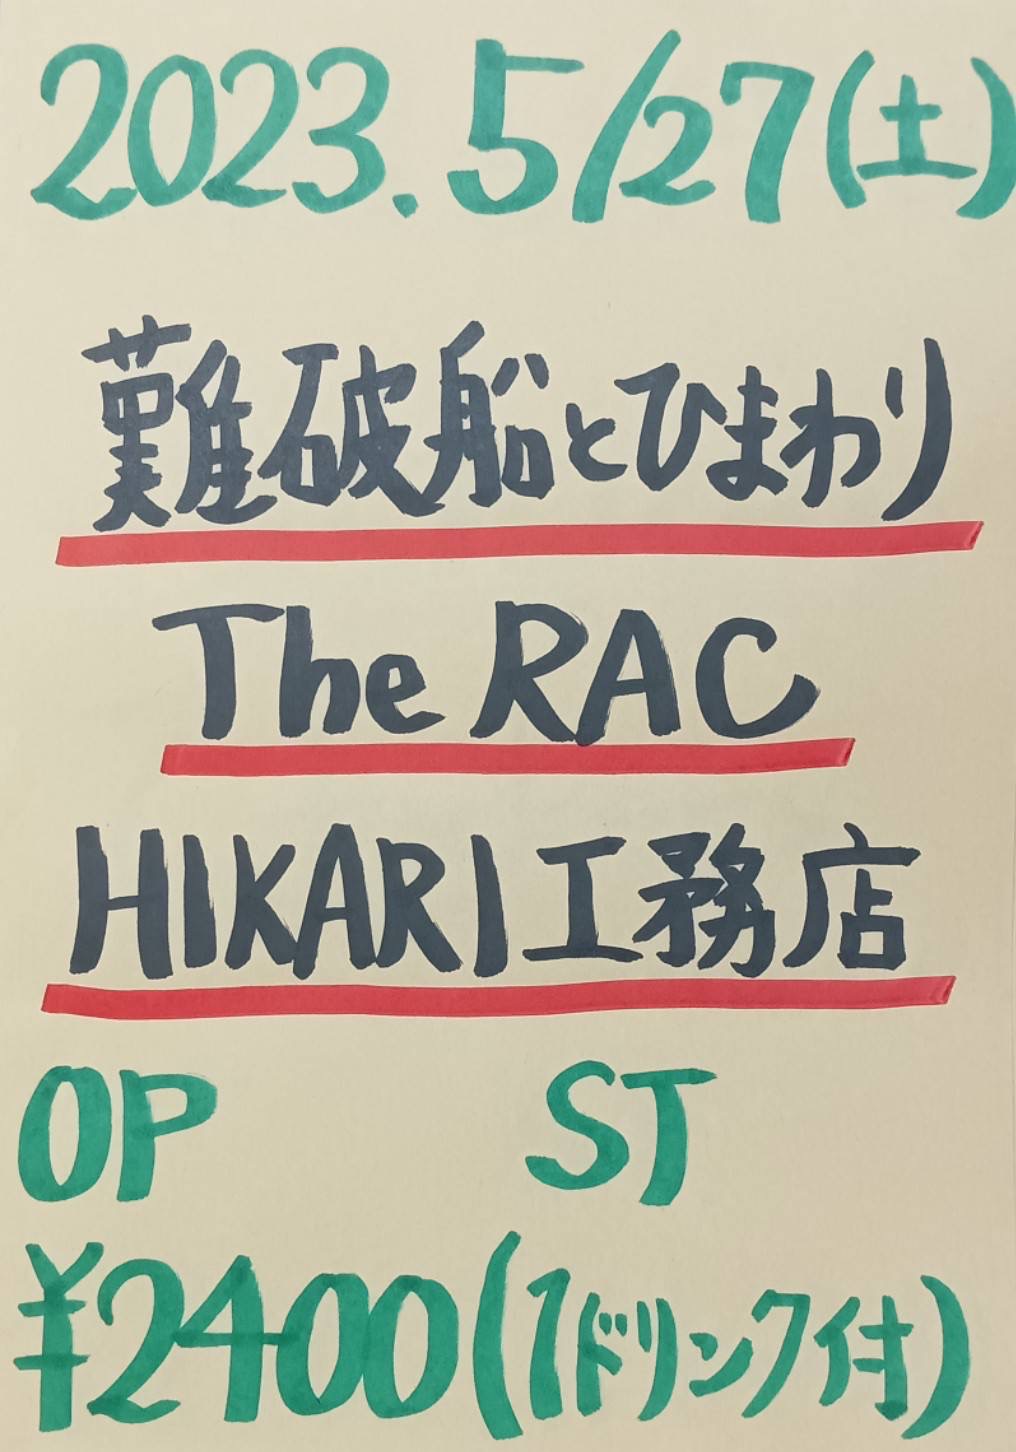 2023.5/27(土)
難破船とひまわり
The RAC
HIKARI工務店
OP ST
¥2400(1ドリンク付)